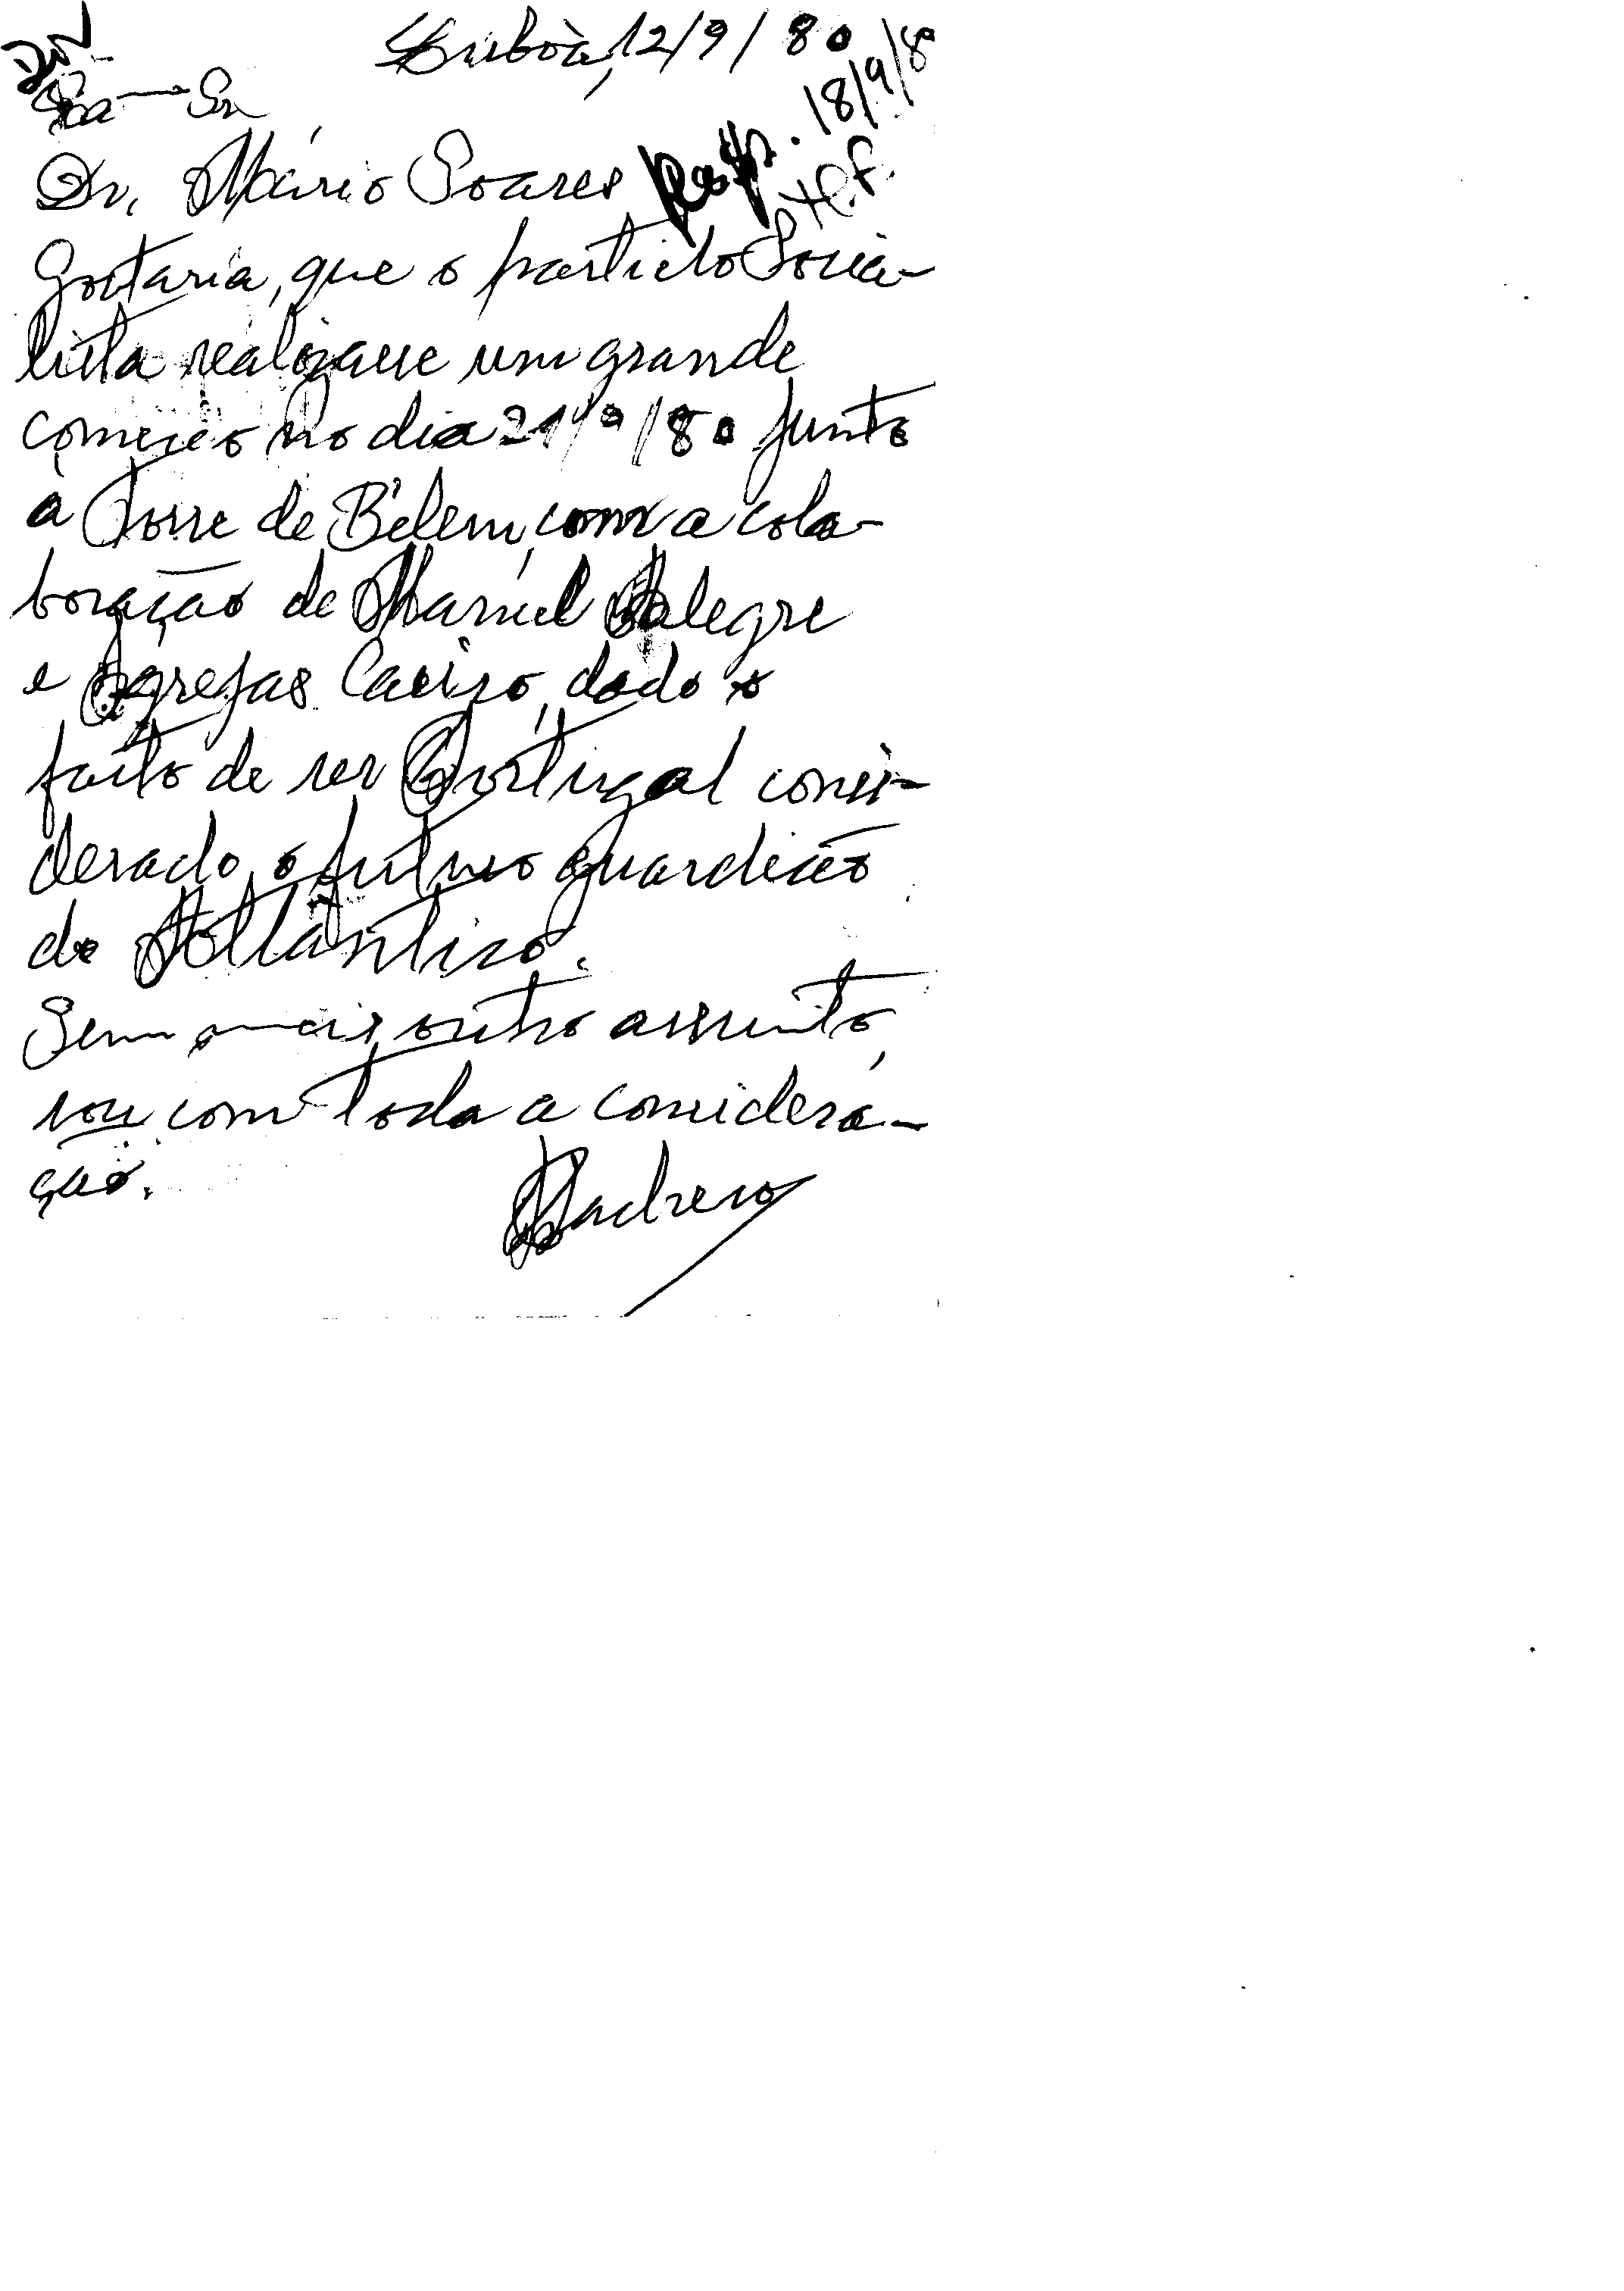 Lisboa, 12/9/80
Resp. 18/9/80
Sr
Dr. Mário Soares
Gostaria, que o partido Socia-
lista realizasse um grande
comicio no dia 21/9/80 junto
a Torre de Bélem, com a cola-
boração de Manuel Alegre
e Igrejas Caeiro, dado o
facto de ser Portugal consi-
derado o futuro guardião
do Atlântico.
Sem mais outro assunto,
sou com toda a considera-
ção.